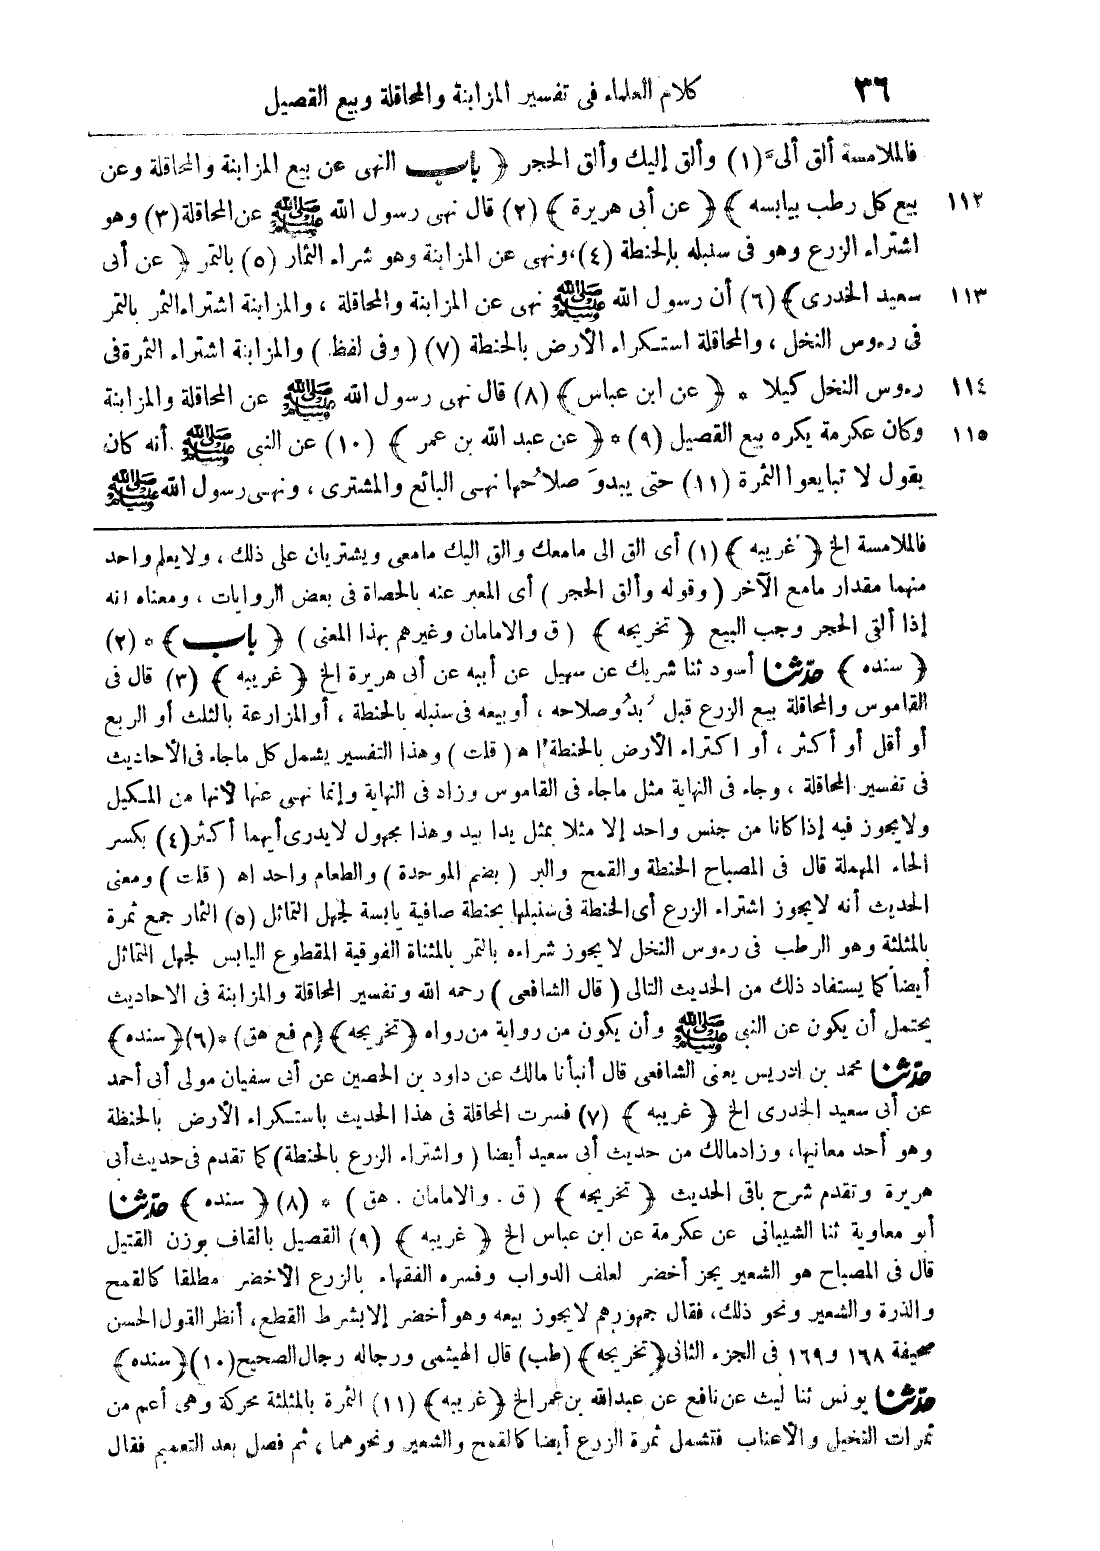 ٣٦
كلام العلماء فى تفسير المزابنة والمحاقلة وبيع القصيل
فالملامسة ألق ألىَّ (١) وألق إليك وألق الحجر ﴿ باب النهى عن بيع المزابنة والمحاقلة وعن
١١٢ بيع كل رطب بيابسه ﴾ ﴿ عن أبى هريرة ﴾ (٢) قال نهى رسول الله ﷺ عن المحاقلة (٣) وهو
اشتراء الزرع وهو فى سنبله بالحنطة (٤)، ونهى عن المزابنة وهو شراء الثمار (٥) بالتمر ﴿ عن أبى
١١٣ سعيد الخدرى ﴾ (٦) أن رسول الله ﷺ نهى عن المزابنة والمحاقلة ، والمزابنة اشتراء الثمر بالتمر
فى رءوس النخل ، والمحاقلة استكراء الأرض بالحنطة (٧) ( وفى لفظ ) والمزابنة اشتراء الثمرة فى
١١٤ رءوس النخل كيلا * ﴿ عن ابن عباس ﴾ (٨) قال نهى رسول الله ﷺ عن المحاقلة والمزابنة
١١٥ وكان عكرمة يكره بيع القصيل (٩) * ﴿ عن عبد الله بن عمر ﴾ (١٠) عن النبى ﷺ أنه كان
يقول لا تبايعوا الثمرة (١١) حتى يبدوَ صلاحُها نهى البائع والمشترى ، ونهى رسول الله ﷺ
فالملامسة الخ ﴿ غريبه ﴾ (١) أى الق الى مامعك والق اليك مامعى ويشتريان على ذلك ، ولا يعلم واحد
منهما مقدار مامع الآخر ( وقوله وألق الحجر ) أى المعبر عنه بالحصاة فى بعض الروايات ، ومعناه انه
إذا ألقى الحجر وجب البيع ﴿ تخريجه ﴾ ( ق والامامان وغيرهم بهذا المعنى ) ﴿ باب ﴾ * (٢)
﴿ سنده ﴾ حدّثنا أسود ثنا شريك عن سهيل عن أبيه عن أبى هريرة الخ ﴿ غريبه ﴾ (٣) قال فى
القاموس والمحاقلة بيع الزرع قبل بدُو صلاحه ، أو بيعه فى سنبله بالحنطة ، أو المزارعة بالثلث أو الربع
أو أقل أو أكثر ، أو اكتراء الأرض بالحنطة اه ( قلت ) وهذا التفسير يشمل كل ماجاء فى الأحاديث
فى تفسير المحاقلة ، وجاء فى النهاية مثل ماجاء فى القاموس وزاد فى النهاية وإنما نهى عنها لأنها من المكيل
ولا يجوز فيه إذا كانا من جنس واحد إلا مثلا بمثل يدا بيد وهذا مجهول لا يدرى أيهما أكثر (٤) بكسر
الحاء المهملة قال فى المصباح الحنطة والقمح والبر ( بضم الموحدة ) والطعام واحد اه ( قلت ) ومعنى
الحديث أنه لا يجوز اشتراء الزرع أى الحنطة فى سنبلها بحنطة صافية يابسة لجهل التماثل (٥) الثمار جمع ثمرة
بالمثلثة وهو الرطب فى رءوس النخل لا يجوز شراءه بالتمر بالمثناة الفوقية المقطوع اليابس لجهل التماثل
أيضا كما يستفاد ذلك من الحديث التالى ( قال الشافعى ) رحمه الله وتفسير المحاقلة والمزابنة فى الاحاديث
يحتمل أن يكون عن النبى ﷺ وأن يكون من رواية من رواه ﴿ تخريجه ﴾ (م فع هق) * (٦) ﴿ سنده ﴾
حدّثنا محمد بن ادريس يعنى الشافعى قال أنبأنا مالك عن داود بن الحصين عن أبى سفيان مولى أبى أحمد
عن أبى سعيد الخدرى الخ ﴿ غريبه ﴾ (٧) فسرت المحاقلة فى هذا الحديث باستكراء الأرض بالحنطة
وهو أحد معانيها، وزاد مالك من حديث أبى سعيد أيضا ( واشتراء الزرع بالحنطة ) كما تقدم فى حديث أبى
هريرة وتقدم شرح باقى الحديث ﴿ تخريجه ﴾ ( ق . والامامان . هق ) * (٨) ﴿ سنده ﴾ حدّثنا
أبو معاوية ثنا الشيبانى عن عكرمة عن ابن عباس الخ ﴿ غريبه ﴾ (٩) القصيل بالقاف بوزن القتيل
قال فى المصباح هو الشعير يجز أخضر لعلف الدواب وفسره الفقهاء بالزرع الأخضر مطلقا كالقمح
والذرة والشعير ونحو ذلك، فقال جمهورهم لا يجوز بيعه وهو أخضر إلا بشرط القطع، أنظر القول الحسن
صحيفة ١٦٨ و١٦٩ فى الجزء الثانى ﴿ تخريجه ﴾ (طب) قال الهيثمى ورجاله رجال الصحيح (١٠) ﴿ سنده ﴾
حدّثنا يونس ثنا ليث عن نافع عن عبدالله بن عمر الخ ﴿ غريبه ﴾ (١١) الثمرة بالمثلثة محركة وهى أعم من
ثمرات النخيل والأعناب فتشمل ثمرة الزرع أيضا كالقمح والشعير ونحوهما ، ثم فصل بعد التعميم فقال